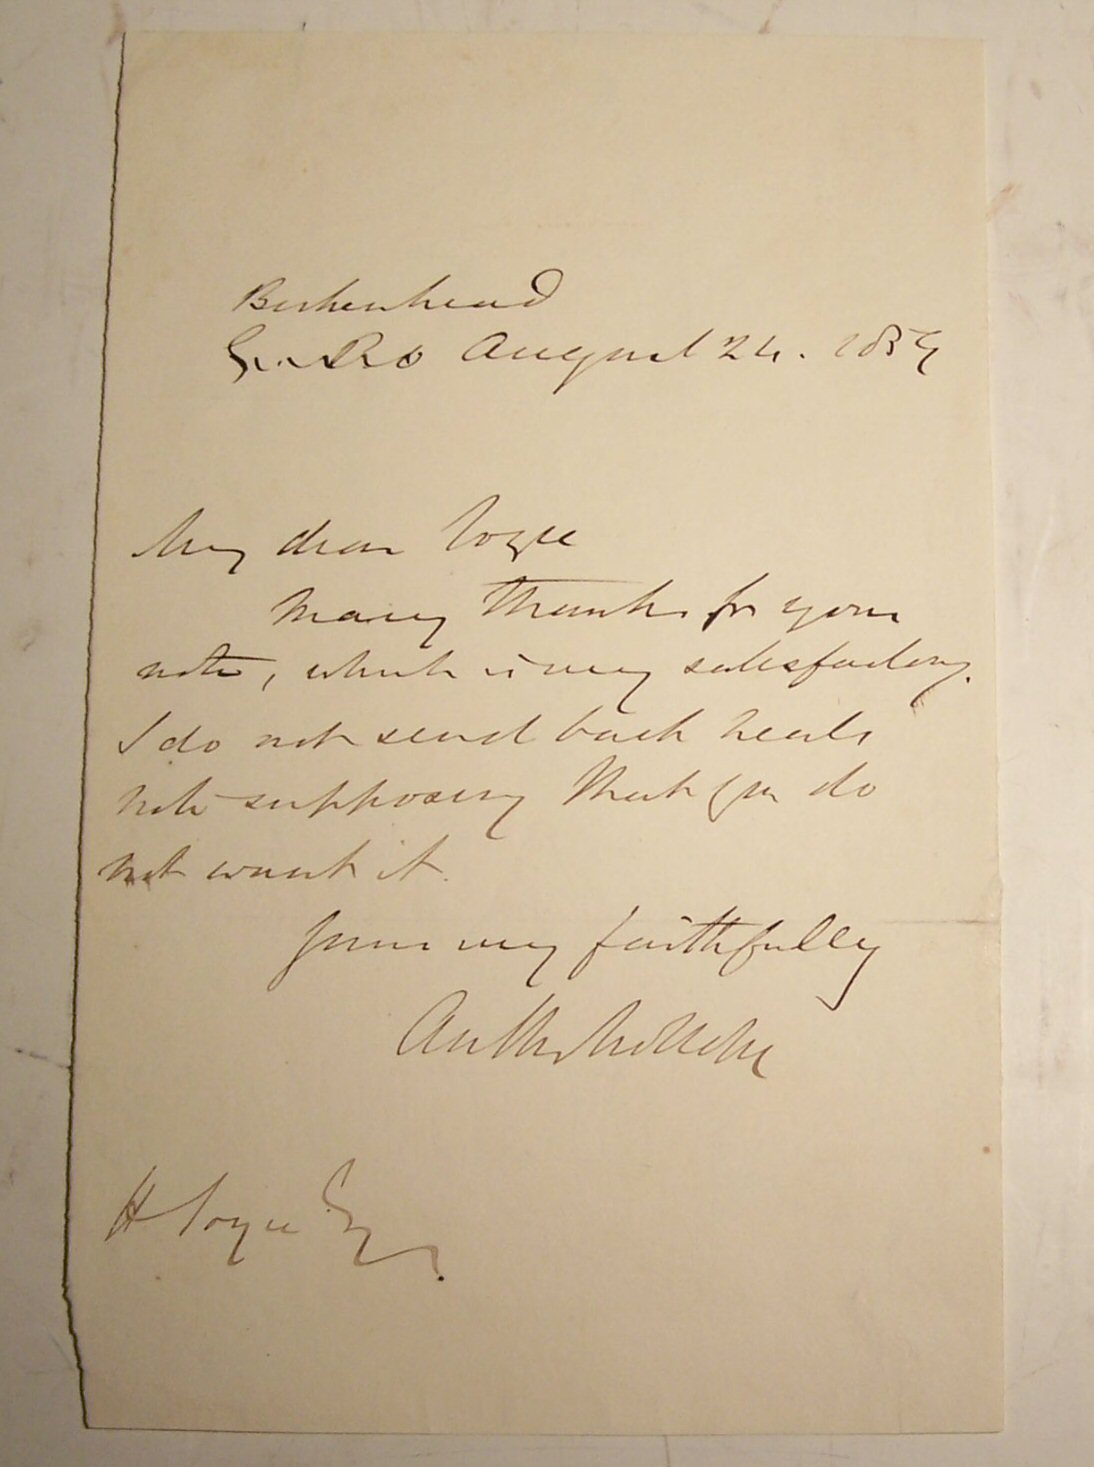 Birkenhead
August 24. 185
My dear
Many thanks for your
note, which is very satisfactory.
I do not send back
note supposing that you do
not want it.
Yours very faithfully
Anthy Trollope
H Esq